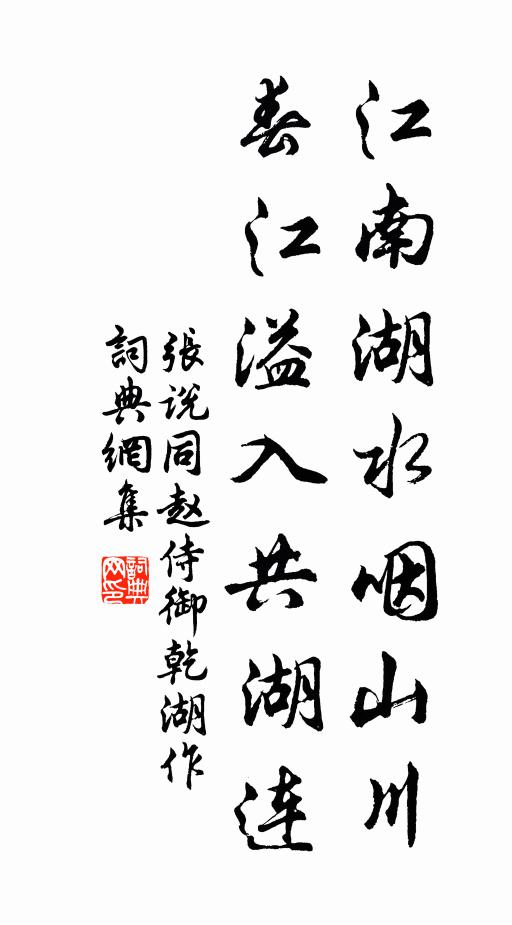 江南湖水咽山川
春江溢入共湖連
張说同赵侍御乾湖作
詞典網集
詞典网印